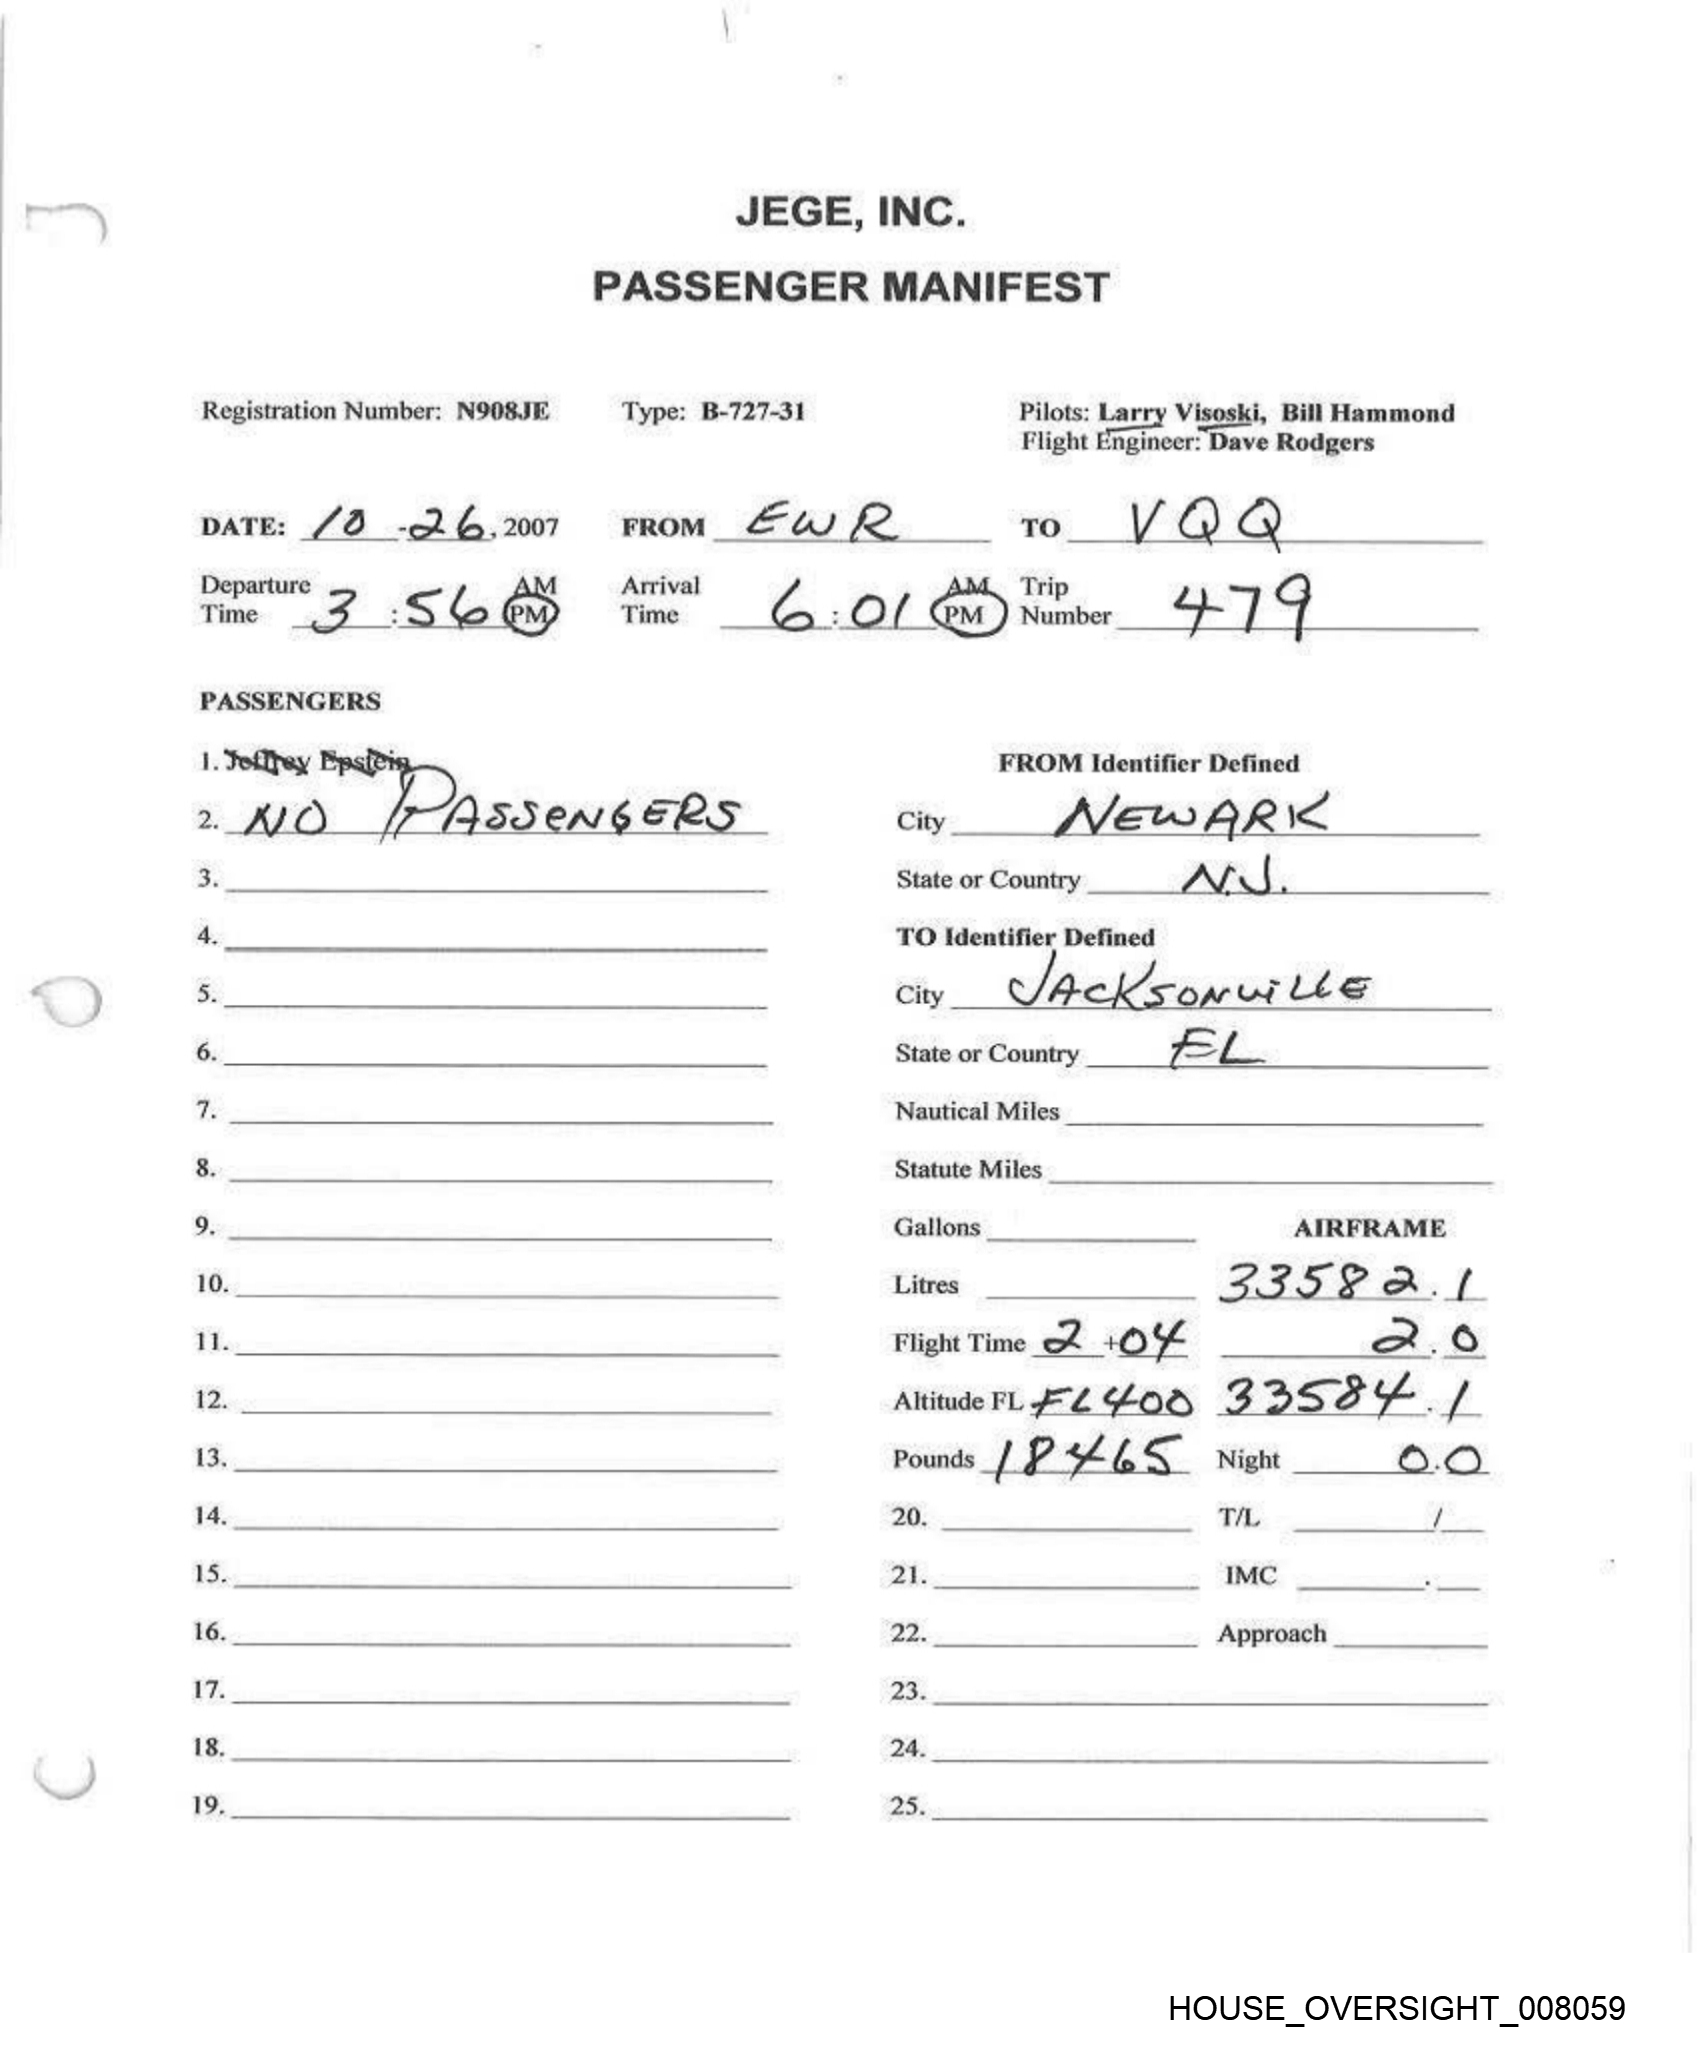 JEGE, INC.
PASSENGER MANIFEST
Registration Number: N908JE Type: B-727-31 Pilots: Larry Visoski, Bill Hammond
Flight Engineer: Dave Rodgers
DATE: 10 -26, 2007 FROM EWR TO VQQ
Departure Time 3:56 AM PM Arrival Time 6:01 AM PM Trip Number 479
PASSENGERS
1. Jeffrey Epstein
FROM Identifier Defined
2. NO PASSENGERS
City NEWARK
3.
State or Country N.J.
4.
TO Identifier Defined
5.
City JACKSONVILLE
6.
State or Country FL
7.
Nautical Miles
8.
Statute Miles
9.
Gallons AIRFRAME
10.
Litres 33582.1
11.
Flight Time 2 +04 2.0
12.
Altitude FL FL400 33584.1
13.
Pounds 18465 Night 0.0
14.
20. T/L /
15.
21. IMC .
16.
22. Approach
17.
23.
18.
24.
19.
25.
HOUSE_OVERSIGHT_008059